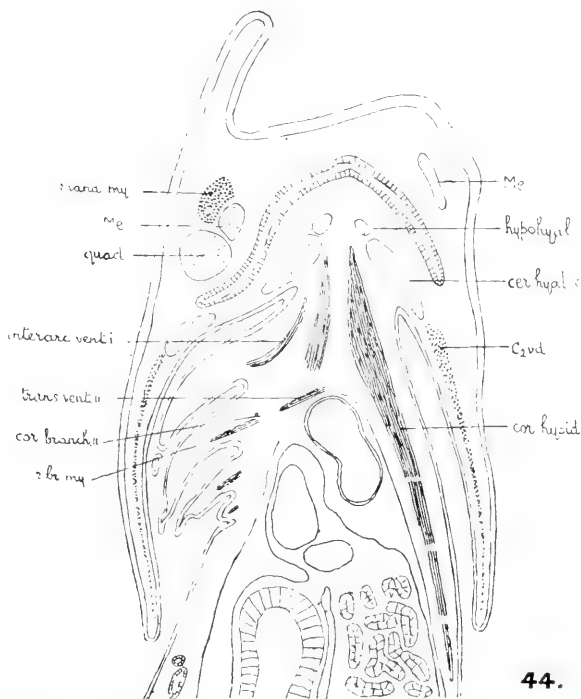 mand my
Me
quad
interarc vent i
trans vent ii
cor branch ii
br my
Me
hypohyal
cer hyal
C₂vd
cor hyoid
44.